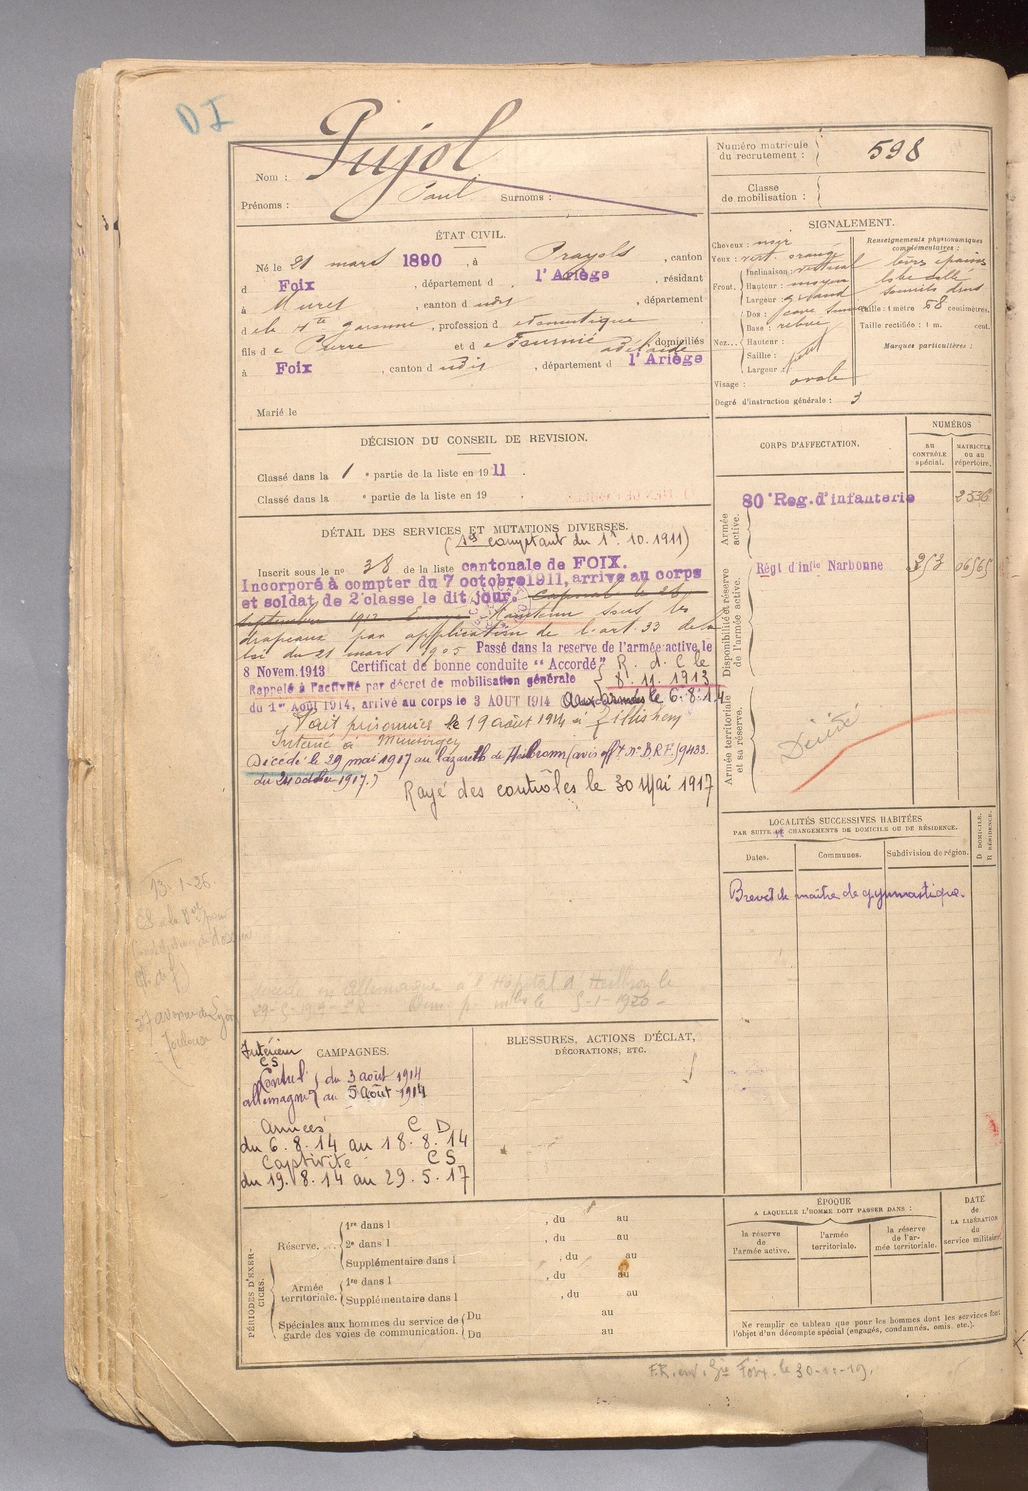 DI
Nom : Pujol
Prénoms : Paul Surnoms :
ÉTAT CIVIL.
Né le 21 mars 1890, à Prayols, canton
d Foix, département d l'Ariège, résidant
à Muret, canton d udit, département
d e la Hte Garonne, profession d domestique
fils d e Pierre et d e Fournié adélaïde domiciliés
à Foix, canton d udit, département d l'Ariège
Marié le
DÉCISION DU CONSEIL DE REVISION.
Classé dans la 1 e partie de la liste en 1911.
Classé dans la e partie de la liste en 19 .
DÉTAIL DES SERVICES ET MUTATIONS DIVERSES.
( comptant du 1r. 10. 1911)
Inscrit sous le no 38 de la liste cantonale de FOIX.
Incorporé à compter du 7 octobre 1911, arrive au corps
et soldat de 2e classe le dit jour. Caporal le 28
septembre 1912 Maintenu sous les
drapeaux par application de l'art. 33 de la
loi du 21 mars 1905 Passé dans la reserve de l'armée active, le
8 Novem. 1913 Certificat de bonne conduite "Accordé" R. d. C le
Rappelé à l'activité par décret de mobilisation générale 8. 11. 1913
du 1er Août 1914, arrivé au corps le 3 AOUT 1914 Aux armées le 6.8.14
Fait prisonnier le 19 août 1914 à
Interné à
Décédé le 29 mai 1917 au lazareth de Heilbronn (avis off. no B.R.F. 9433
du 24 octobre 1917.)
Rayé des contrôles le 30 Mai 1917
décédé en Allemagne à l'Hôpital d'Heilbron le
5-1-1920
CAMPAGNES.
Intérieur
CS
du 3 août 1914
allemagne au 5 Août 1914
Armées C D
du 6. 8. 14 au 18. 8. 14
Captivité C S
du 19. 8. 14 au 29. 5. 17
BLESSURES, ACTIONS D'ÉCLAT,
DÉCORATIONS, ETC.
PÉRIODES D'EXERCICES.
Réserve....
1re dans l , du au
2e dans l , du au
Supplémentaire dans l , du au
Armée territoriale.
1re dans l , du au
Supplémentaire dans l , du au
Spéciales aux hommes du service de
garde des voies de communication.
Du au
Du au
Numéro matricule
du recrutement : 598
Classe
de mobilisation :
SIGNALEMENT.
Cheveux : noir
Yeux : vert. orangé
Front.
Inclinaison : vertical
Hauteur : moyen
Largeur : grand
Nez...
Dos : cave
Base : relevé
Hauteur :
Saillie : petit
Largeur :
Visage : ovale
Degré d'instruction générale : 3
Renseignements physionomiques
complémentaires :
lèvres épaisses
lobe collé
sourcils droits
Taille : 1 mètre 58 centimètres.
Taille rectifiée : 1 m. cent.
Marques particulières :
CORPS D'AFFECTATION.
NUMÉROS
au
CONTRÔLE
spécial.
MATRICULE
ou au
répertoire.
Armée
active.
80e Reg. d'infanterie 2536
Disponibilité et réserve
de l'armée active.
Régt d'infie Narbonne 353 06565
Armée territoriale
et sa réserve.
Décédé
LOCALITÉS SUCCESSIVES HABITÉES
PAR SUITE DE CHANGEMENTS DE DOMICILE OU DE RÉSIDENCE.
Dates. Communes. Subdivision de région.
D DOMICILE.
R RÉSIDENCE.
Brevet de maître de gymnastique.
ÉPOQUE
A LAQUELLE L'HOMME DOIT PASSER DANS :
la réserve
de
l'armée active.
l'armée
territoriale.
la réserve
de l'ar-
mée territoriale.
DATE
de
LA LIBÉRATION
du
service militaire.
Ne remplir ce tableau que pour les hommes dont les services font
l'objet d'un décompte spécial (engagés, condamnés, omis, etc.).
13-1-26
37 avenue de Lyon
Toulouse
Foix. le 30-11-19.